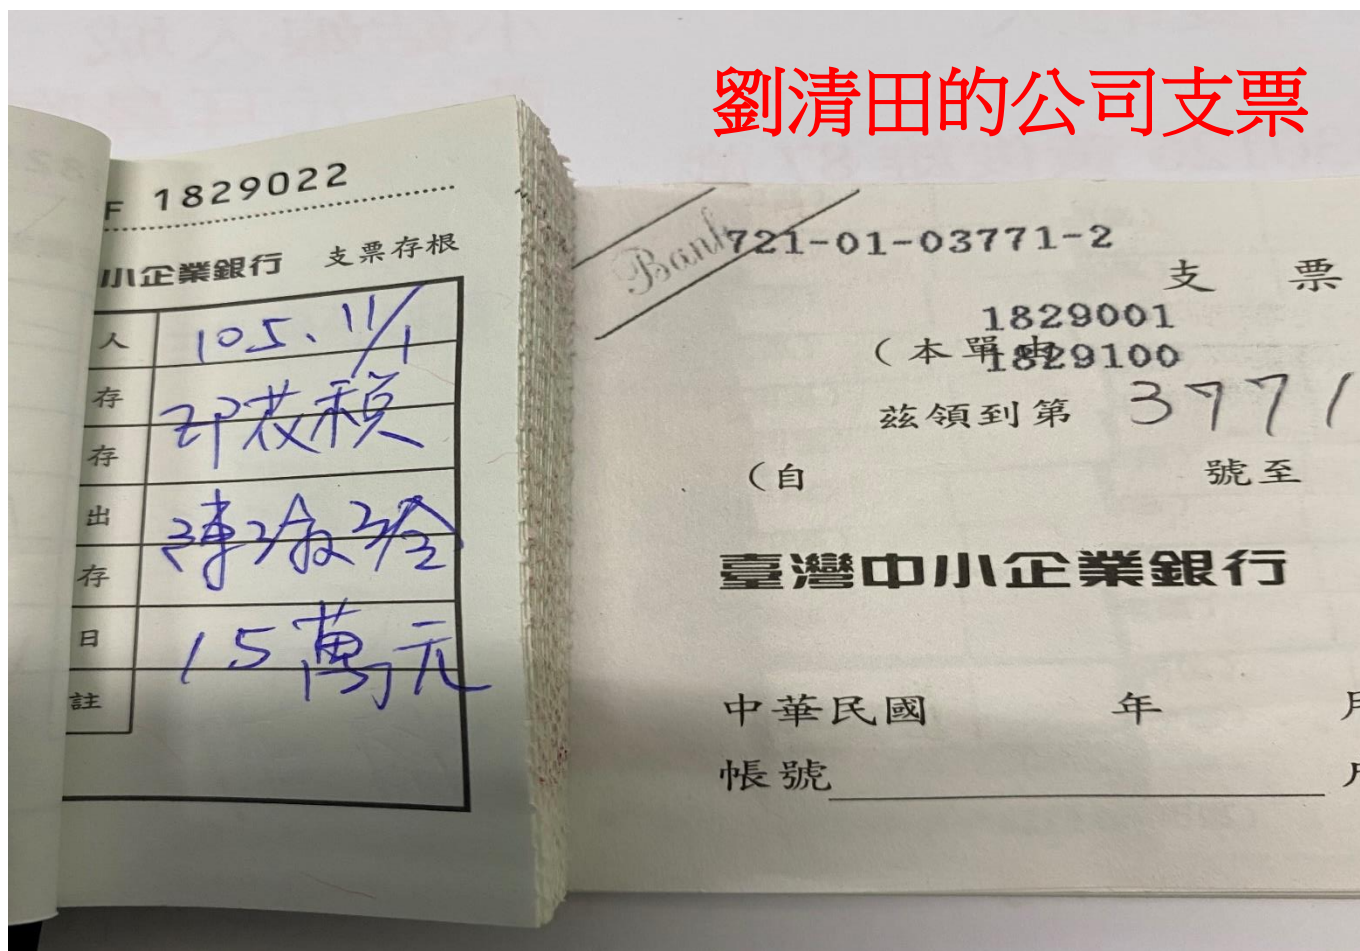 劉清田的公司支票
F 1829022
小企業銀行 支票存根
人 105.11/1
存
印花稅
存
出 陳淑玲
存
日 15萬元
註
Bank
721-01-03771-2
支 票
1829001
(本單由
1829100
茲領到第 3771
(自 號至
臺灣中小企業銀行
中華民國 年 月
帳號